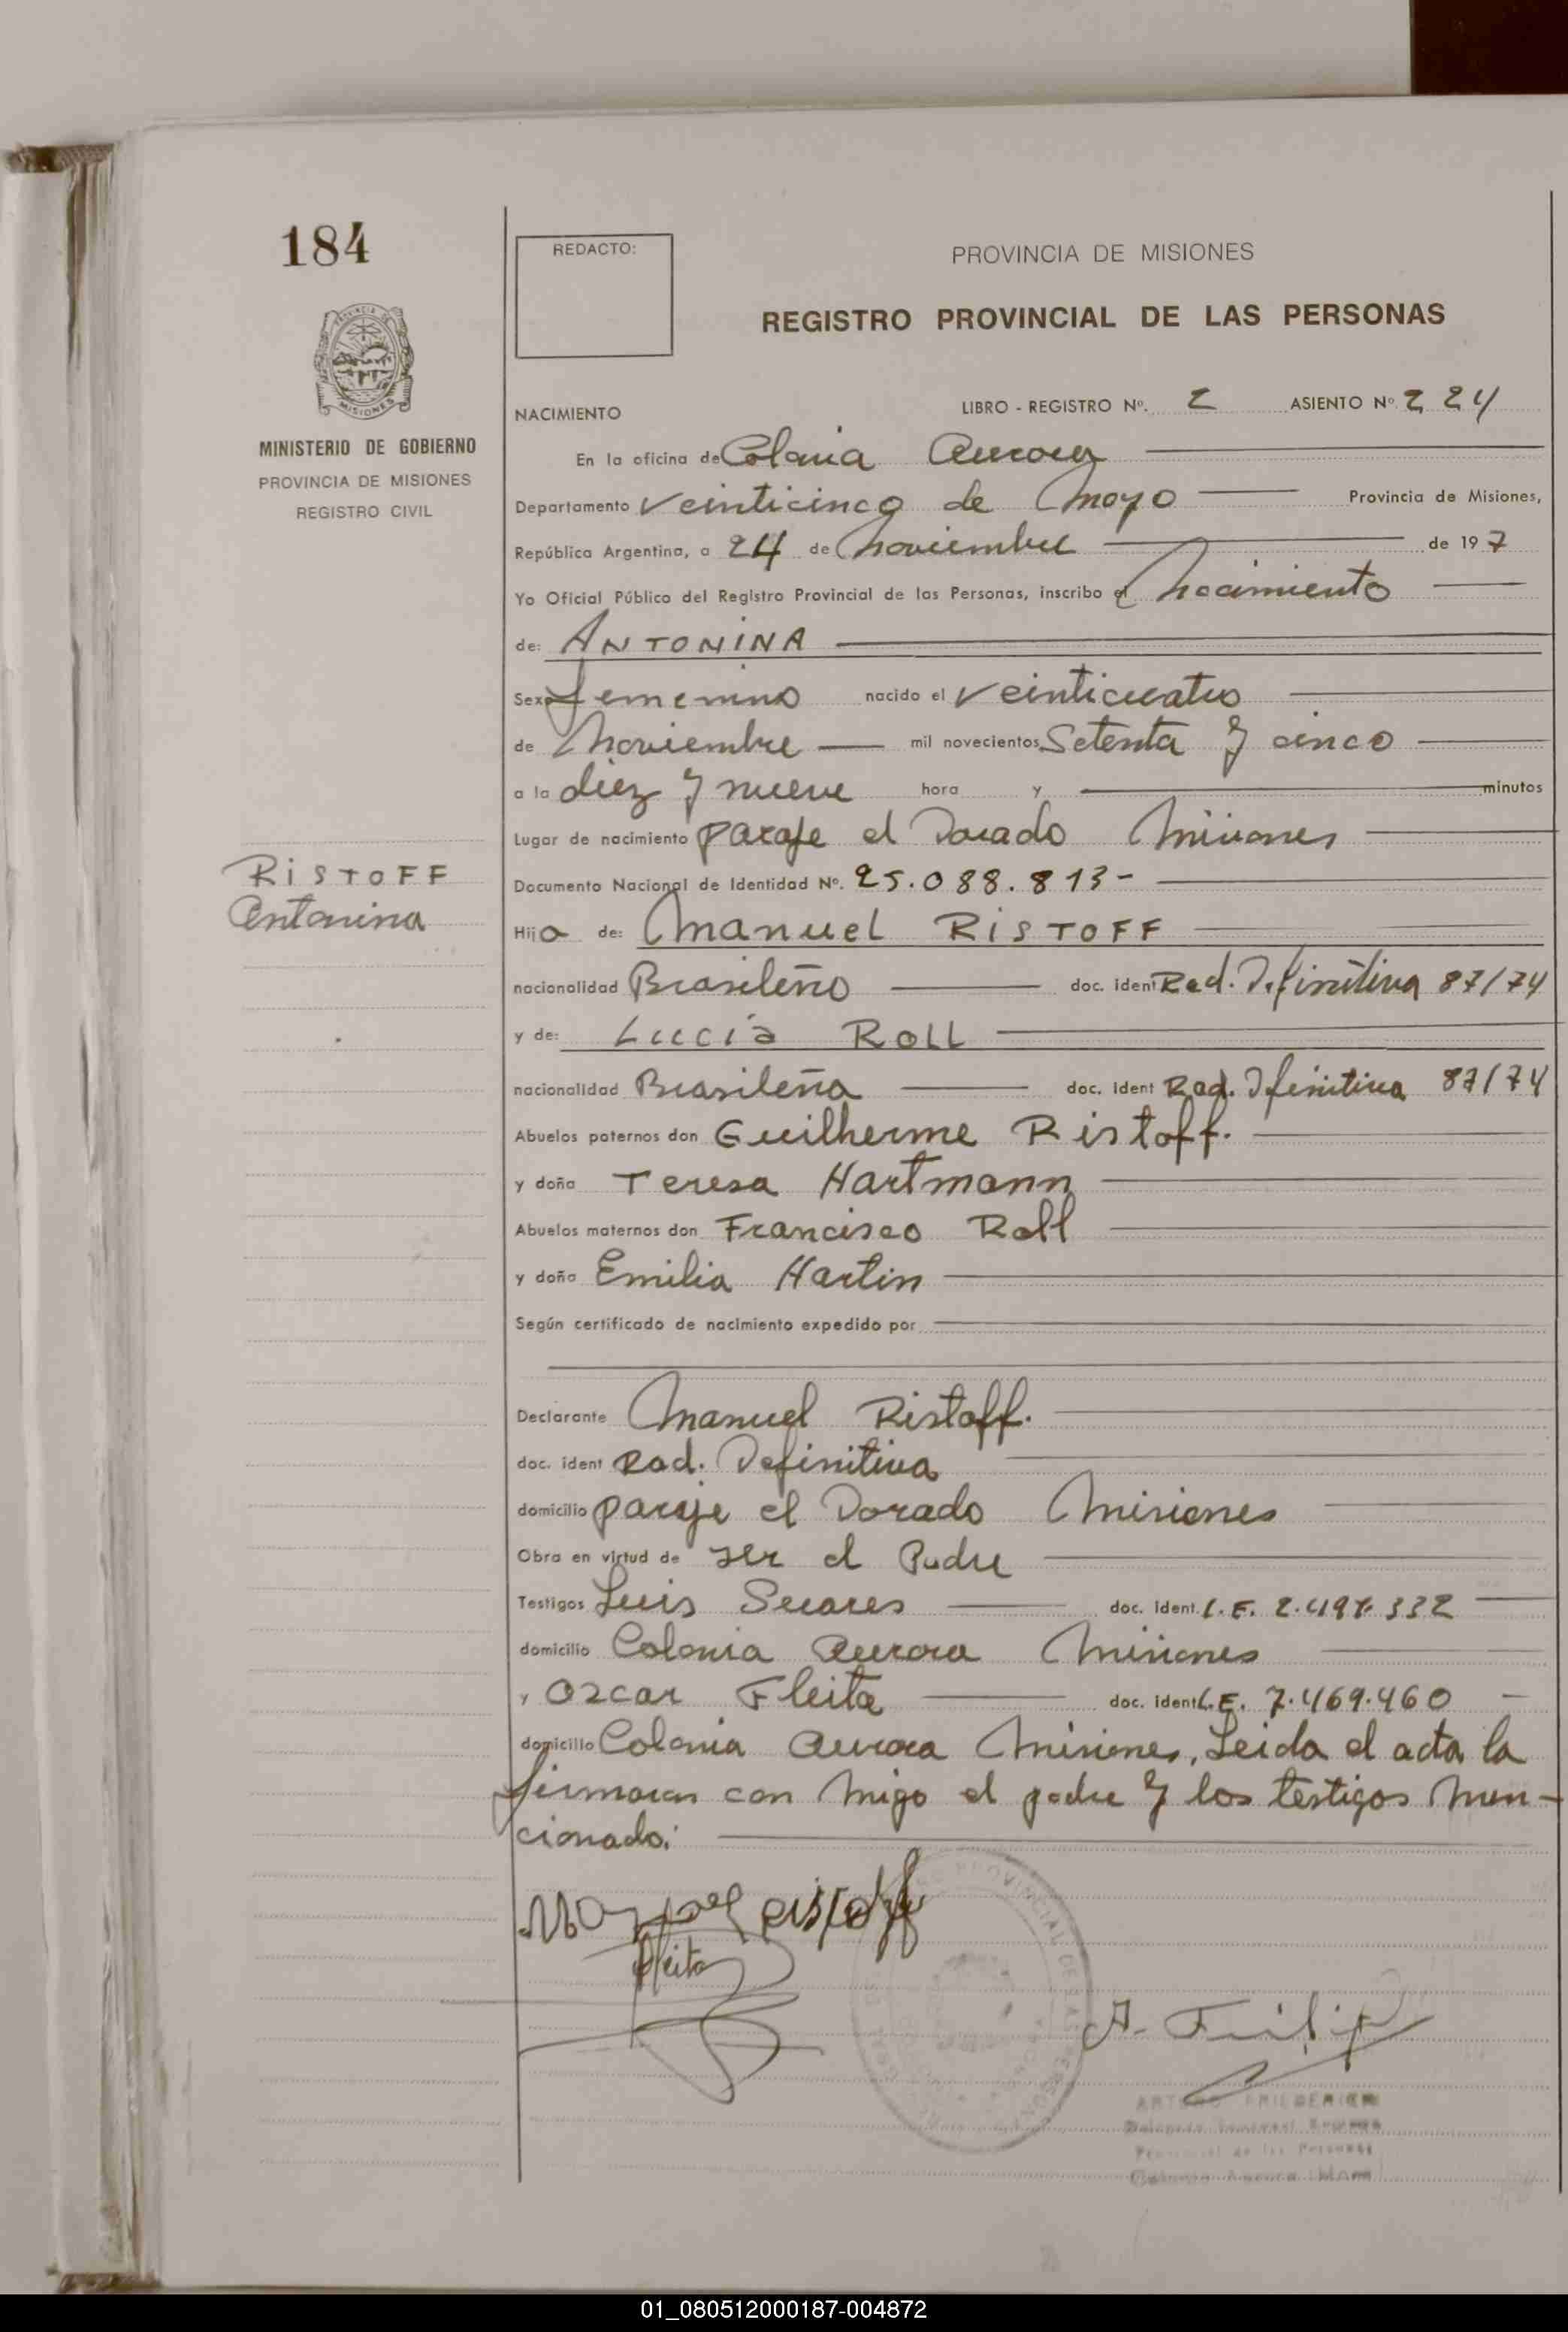 184
REDACTO:
PROVINCIA DE MISIONES
REGISTRO PROVINCIAL DE LAS PERSONAS
MINISTERIO DE GOBIERNO
PROVINCIA DE MISIONES
REGISTRO CIVIL
NACIMIENTO LIBRO - REGISTRO Nº. 2 ASIENTO Nº. 224
En la oficina de Colonia Aurora
Departamento Veinticinco de Mayo Provincia de Misiones,
República Argentina, a 24 de Noviembre de 197
Yo Oficial Público del Registro Provincial de las Personas, inscribo el Nacimiento
de: ANTONINA
Sexo femenino nacido el Veinticuatro
de Noviembre mil novecientos Setenta y cinco
a la diez y nueve hora y minutos
Lugar de nacimiento paraje el Dorado Misiones
RISTOFF
Antonina
Documento Nacional de Identidad Nº. 25.088.813-
Hija de: Manuel RISTOFF
nacionalidad Brasileño doc. ident Rad. Definitiva 87/74
y de: Lucía ROLL
nacionalidad Brasileña doc. ident Rad. Definitiva 87/74
Abuelos paternos don Guilherme Ristoff.
y doña Teresa Hartmann
Abuelos maternos don Francisco Roll
y doña Emilia Hartin
Según certificado de nacimiento expedido por
Declarante Manuel Ristoff.
doc. ident Rad. Definitiva
domicilio paraje el Dorado Misiones
Obra en virtud de ser el Padre
Testigos Luis Suares doc. ident. L.E.
domicilio Colonia Aurora Misiones
y Oscar Fleita doc. ident L.E. 7.469.460
domicilio Colonia Aurora Misiones, Leida el acta la
firmaron con migo el padre y los testigos men-
cionado.
Ristoff
Fleita
01_080512000187-004872